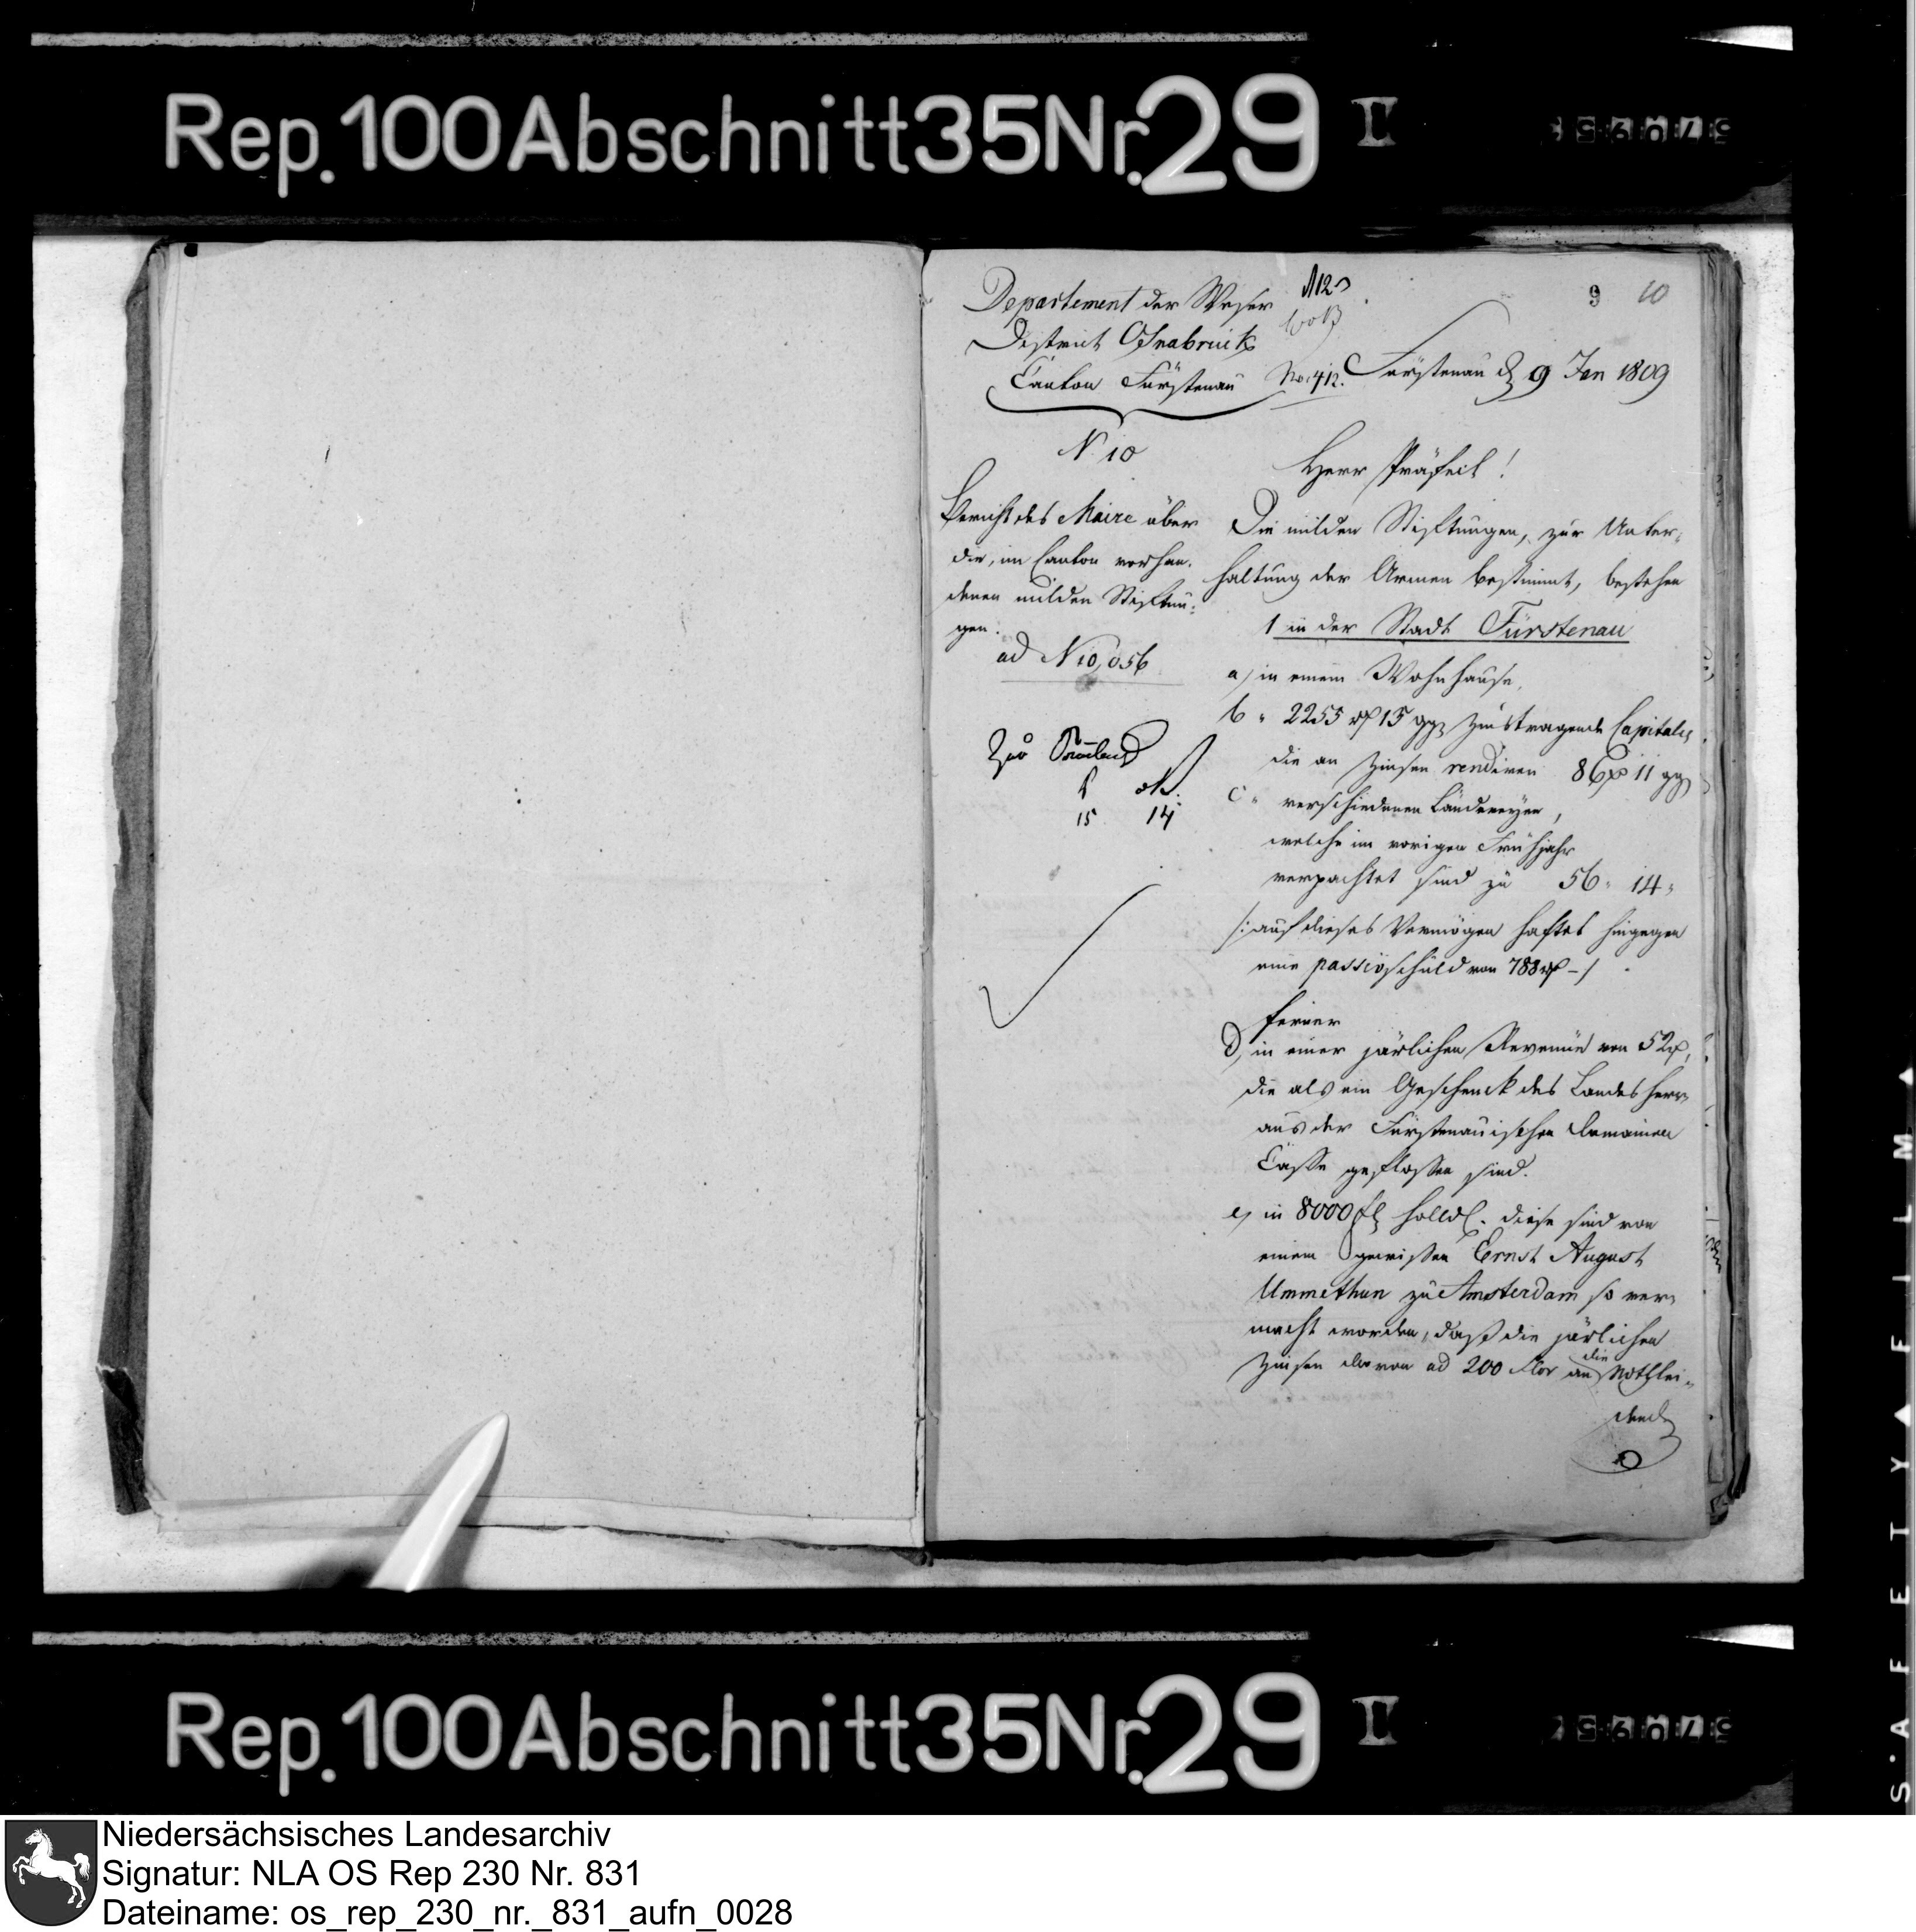 Rep. 100 Abschnitt 35 Nr. 29 I
Departement der Weser
District Osnabrück
Canton Fürstenau
No: 412.
9 10
Fürstenau d 9 Jan 1809
N. 10
Bericht des Maire über
die, im Canton vorhan-
denen milden Stiftun-
gen.
ad N 10,056
15 14
Herr Präfect!
Die milden Stiftungen, zur Unter-
haltung der Armen bestimmt, bestehen
1 in der Stadt Fürstenau
a) in einem Wohnhause,
b " 2255 rt 15 gg zinstragende Capitalien
die an Zinsen rendiren 86 rt 11 gg
c " verschiedenen Ländereyen,
welche im vorigen Frühjahr
verpachtet sind zu 56 " 14 "
/: auf dieses Vermögen haftet hingegen
eine passivschuld von 788 rt -/
ferner
d, in einer järlichen Revenüe von 52 rt,
die als ein Geschenck des Landesherrn
aus der Fürstenauischen Domainen
Casse geflossen sind.
e, in 8000 fl holld. diese sind von
einem gewissen Ernst August
Ummethun zu Amsterdam so ver-
macht worden, daß die järlichen
Zinsen davon ad 200 Flor an die Nothlei-
dende
Rep. 100 Abschnitt 35 Nr. 29 I
SAFETY FILM
Niedersächsisches Landesarchiv
Signatur: NLA OS Rep 230 Nr. 831
Dateiname: os_rep_230_nr._831_aufn_0028